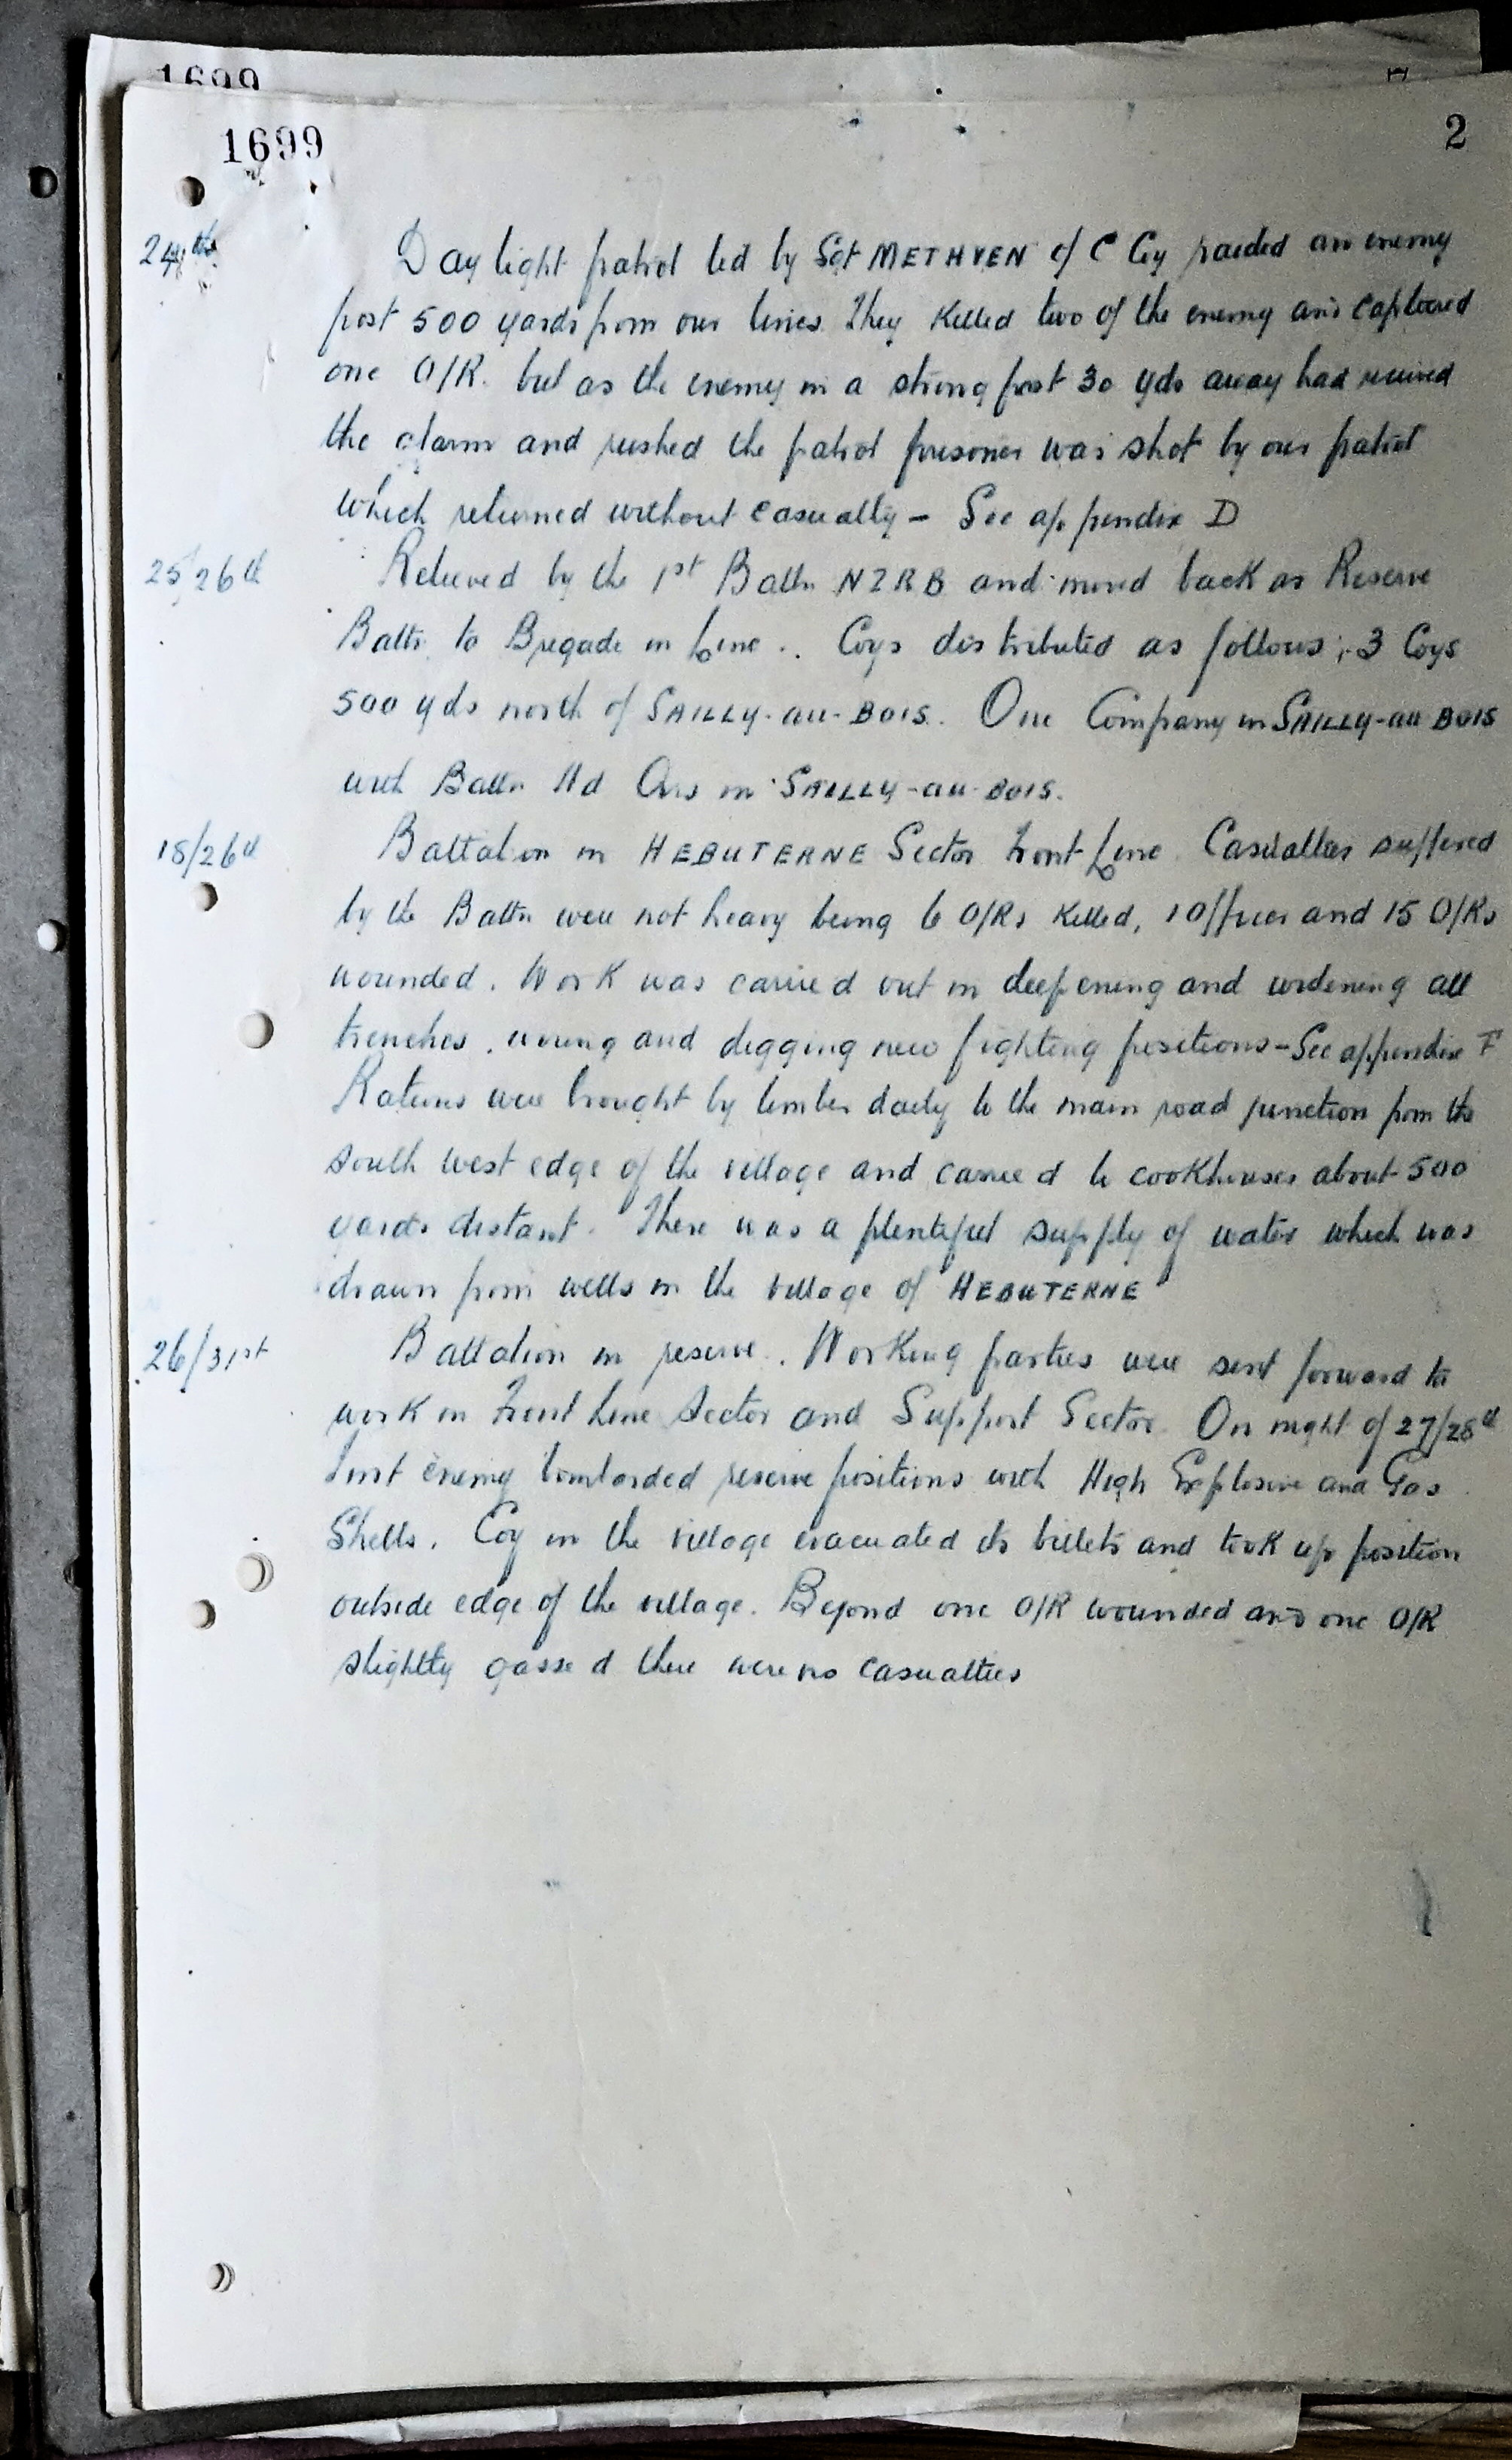 1699
1699
2
24th Daylight patrol led by Sgt METHVEN of C Coy raided an enemy
post 500 yards from our lines. They killed two of the enemy and captured
one O/R. but as the enemy in a strong post 30 yds away had received
the alarm and rushed the patrol prisoner was shot by our patrol
which returned without casualty - See appendix D
25/26th Relieved by the 1st Battn NZRB and moved back as Reserve
Battn to Brigade in Line.. Coys distributed as follows; 3 Coys
500 yds north of SAILLY-au-BOIS. One Company in SAILLY-au BOIS
with Battn Hd Qrs in SAILLY-au-BOIS.
18/26th Battalion in HEBUTERNE Sector Front Line. Casualties suffered
by the Battn were not heavy being 6 O/Rs killed, 1 Officer and 15 O/Rs
wounded. Work was carried out in deepening and widening all
trenches, wiring and digging new fighting positions - See appendix F
Rations were brought by limber daily to the main road junction from the
south west edge of the village and carried to cookhouses about 500
yards distant. There was a plentiful supply of water which was
drawn from wells in the village of HEBUTERNE
26/31st Battalion in reserve. Working parties were sent forward to
work in Front Line Sector and Support Sector. On night of 27/28th
Inst enemy bombarded reserve positions with High Explosive and Gas
Shells. Coy in the village evacuated its billets and took up position
outside edge of the village. Beyond one O/R wounded and one O/R
slightly gassed there were no casualties